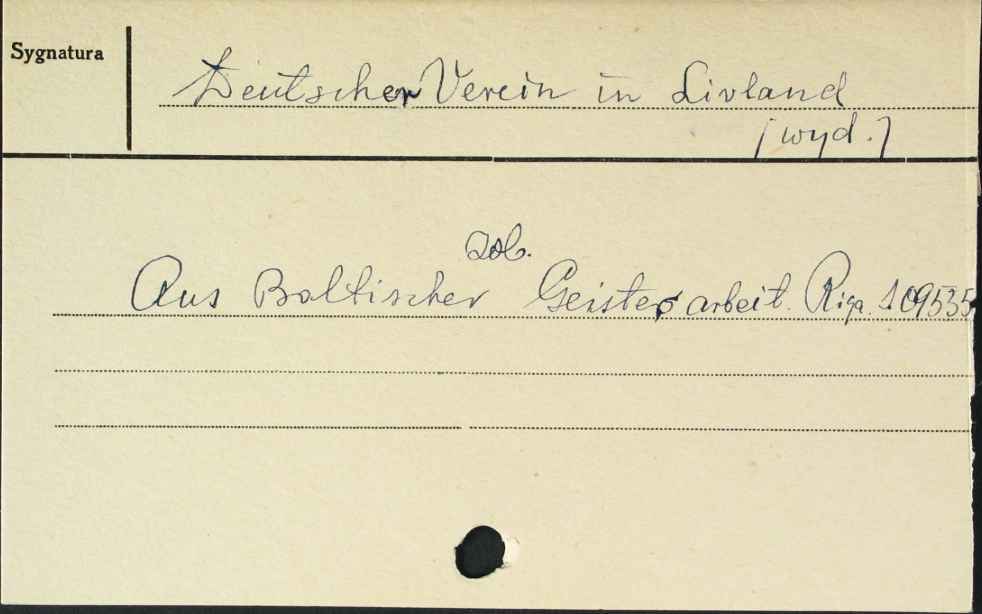 Sygnatura
Deutscher Verein in Livland
[wyd.]
zob.
Aus Baltischer Geistesarbeit. Riga. 109535